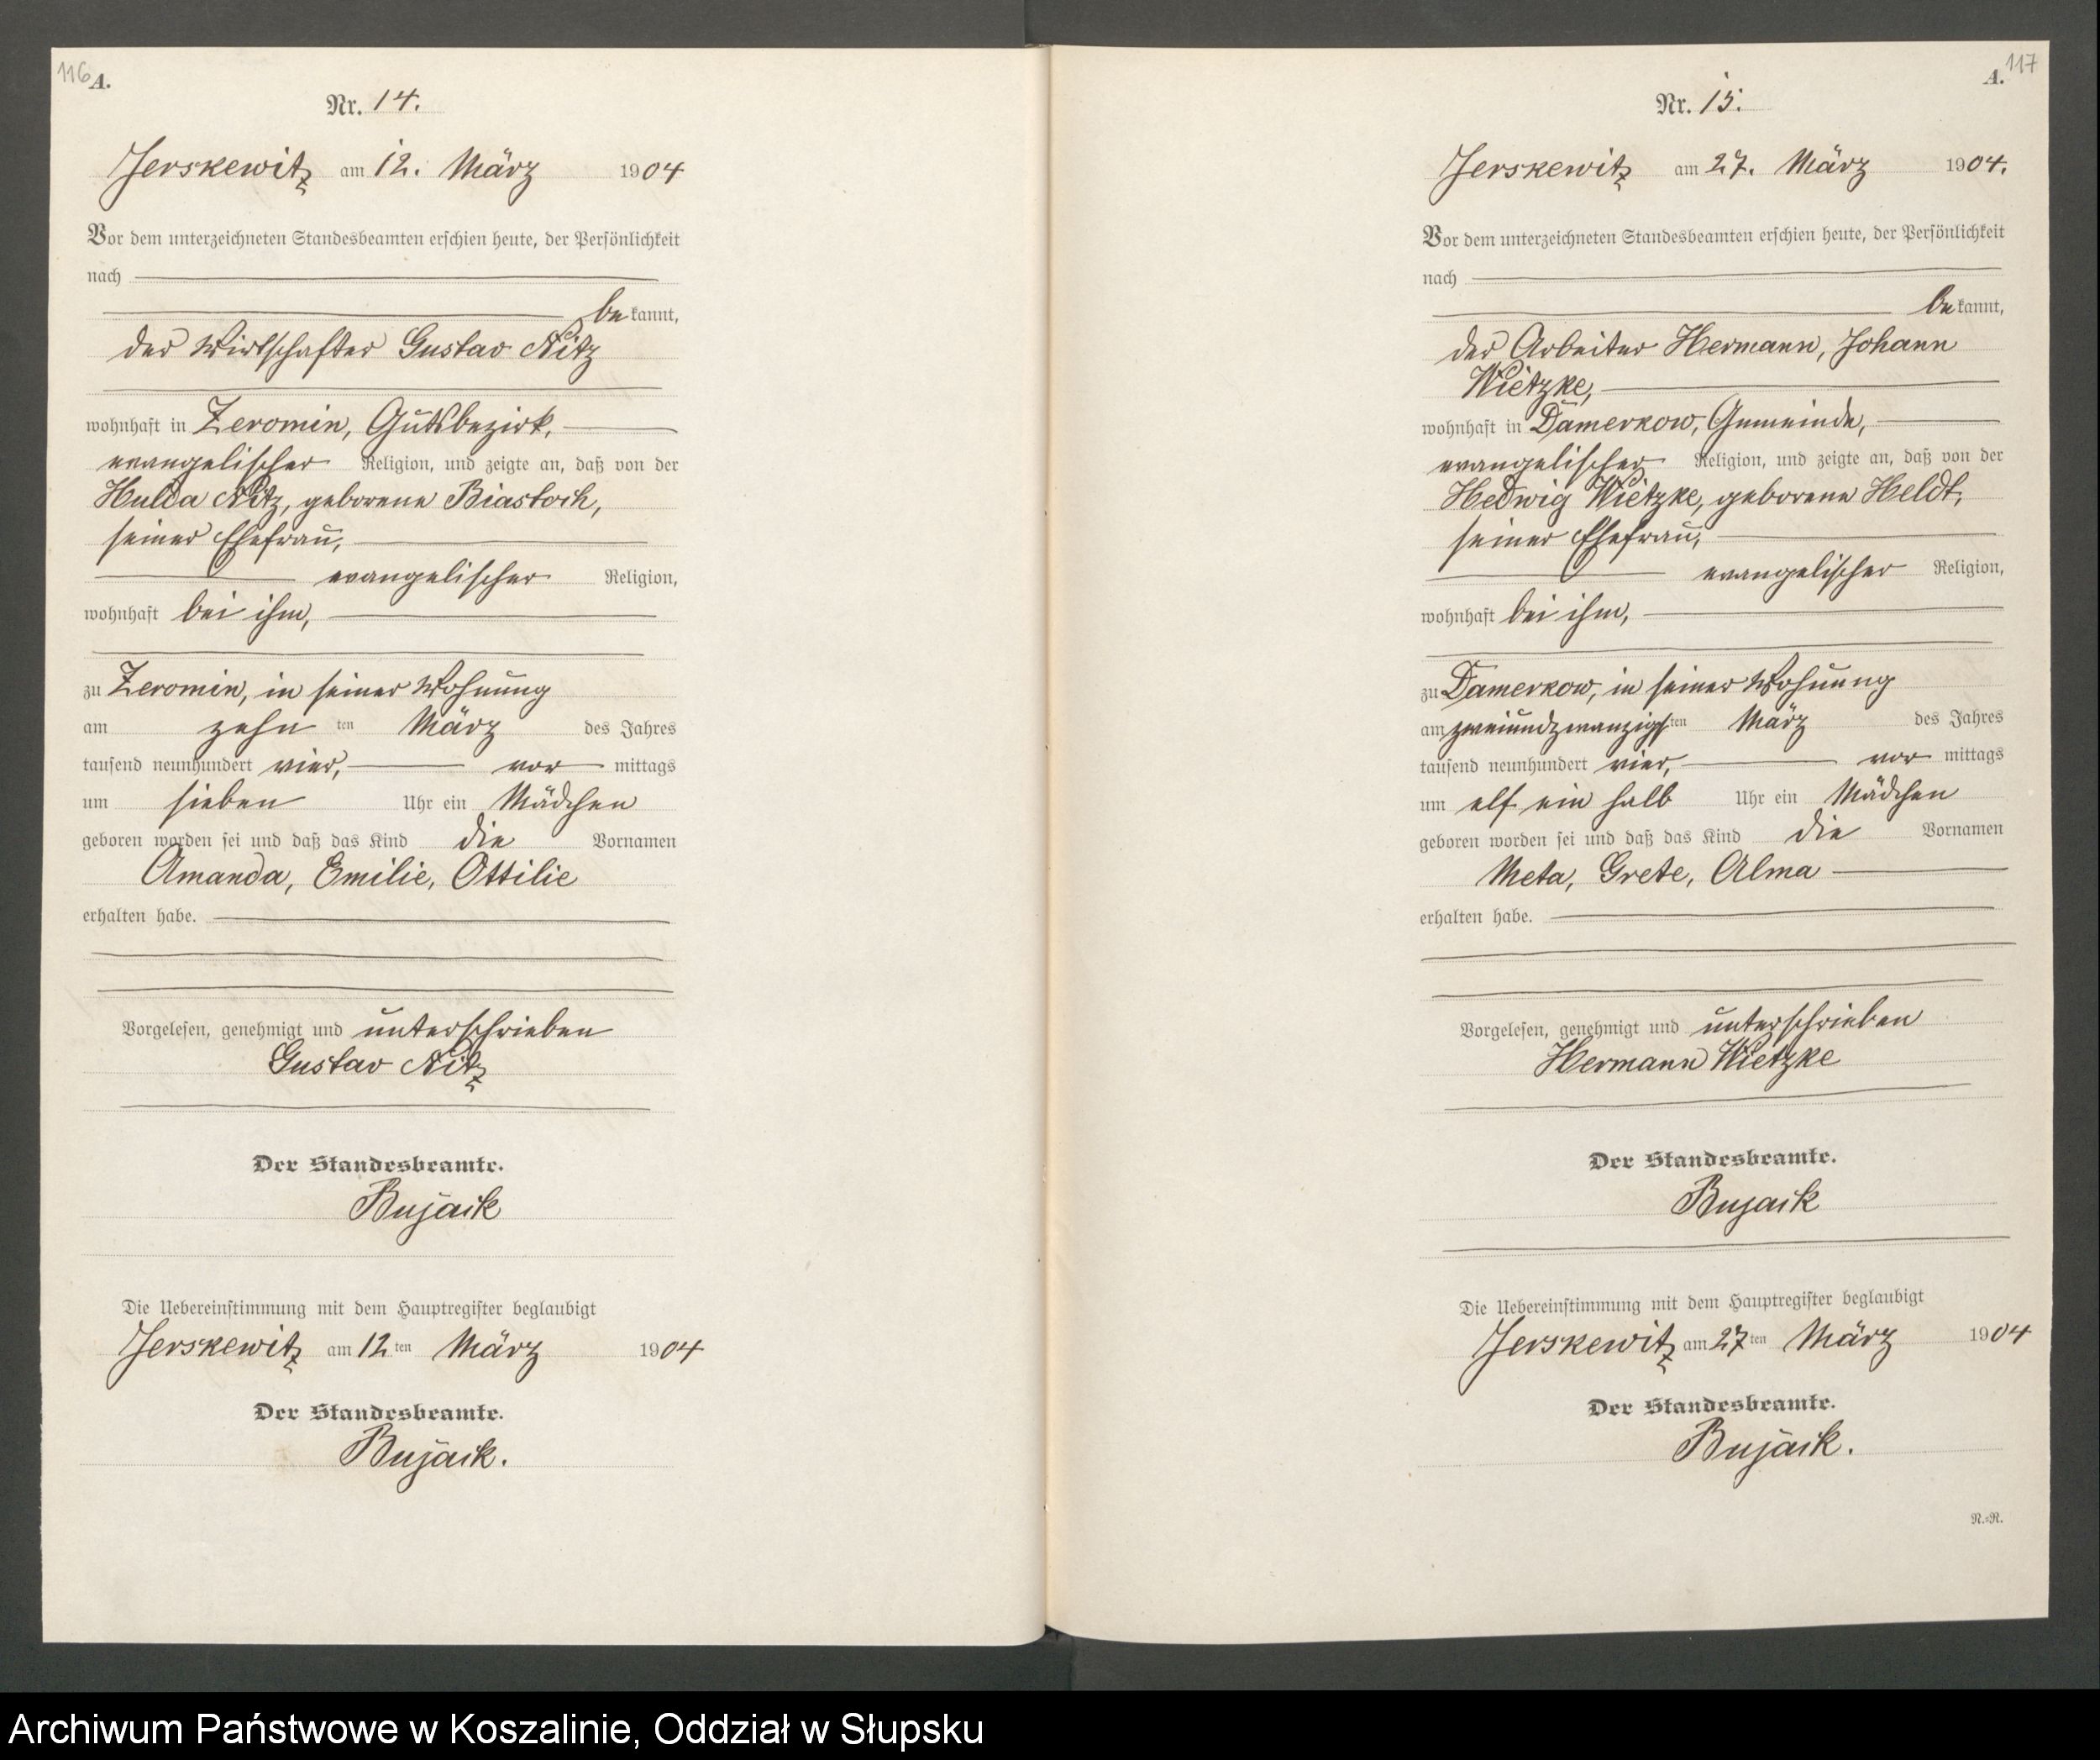 116 A.
Nr. 14.
Jerskewitz am 12. März 1904
Vor dem unterzeichneten Standesbeamten erschien heute, der Persönlichkeit
nach
bekannt,
der Wirtschafter Gustav Nitz
wohnhaft in Zeromin, Gutsbezirk,
evangelischer Religion, und zeigte an, daß von der
Hulda Nitz, geborene Biastoch,
seiner Ehefrau,
evangelischer Religion,
wohnhaft bei ihm,
zu Zeromin, in seiner Wohnung
am zehn ten März des Jahres
tausend neunhundert vier, vor mittags
um sieben Uhr ein Mädchen
geboren worden sei und daß das Kind die Vornamen
Amanda, Emilie, Ottilie
erhalten habe.
Vorgelesen, genehmigt und unterschrieben
Gustav Nitz
Der Standesbeamte.
Bujack
Die Uebereinstimmung mit dem Hauptregister beglaubigt
Jerskewitz am 12ten März 1904
Der Standesbeamte.
Bujack.
A. 117
Nr. 15.
Jerskewitz am 27. März 1904.
Vor dem unterzeichneten Standesbeamten erschien heute, der Persönlichkeit
nach
bekannt,
der Arbeiter Hermann, Johann
Wietzke,
wohnhaft in Damerkow, Gemeinde,
evangelischer Religion, und zeigte an, daß von der
Hedwig Wietzke, geborene Heldt,
seiner Ehefrau,
evangelischer Religion,
wohnhaft bei ihm,
zu Damerkow, in seiner Wohnung
am zweiundzwanzigsten März des Jahres
tausend neunhundert vier, vor mittags
um elf ein halb Uhr ein Mädchen
geboren worden sei und daß das Kind die Vornamen
Meta, Grete, Alma
erhalten habe.
Vorgelesen, genehmigt und unterschrieben
Hermann Wietzke
Der Standesbeamte.
Bujack
Die Uebereinstimmung mit dem Hauptregister beglaubigt
Jerskewitz am 27ten März 1904
Der Standesbeamte.
Bujack.
N.=R.
Archiwum Państwowe w Koszalinie, Oddział w Słupsku